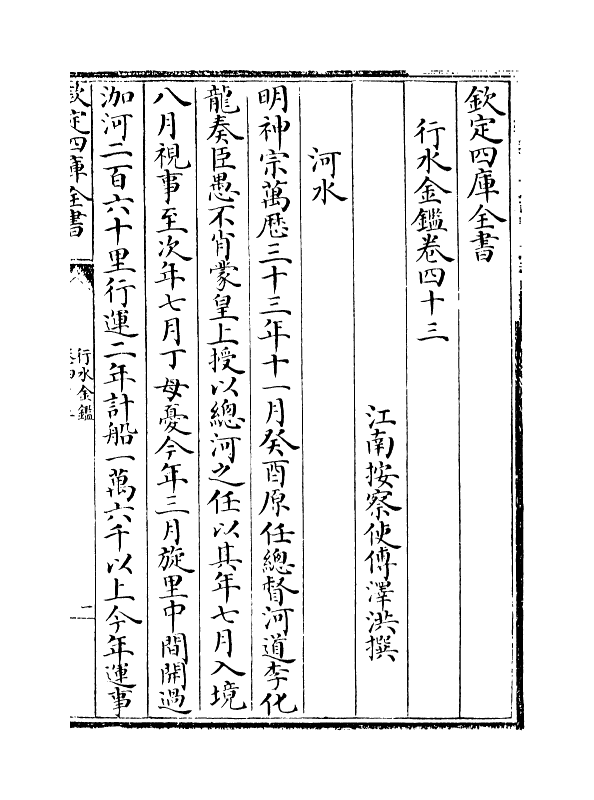 欽定四庫全書
行水金鑑卷四十三
江南按察使傅澤洪撰
河水
明神宗萬厯三十三年十一月癸酉原任總督河道李化
龍奏臣愚不肖蒙皇上授以總河之任以其年七月入境
八月視事至次年七月丁母憂今年三月旋里中間開過
泇河二百六十里行運二年計船一萬六千以上今年運事
欽定四庫全書
行水金鑑
一